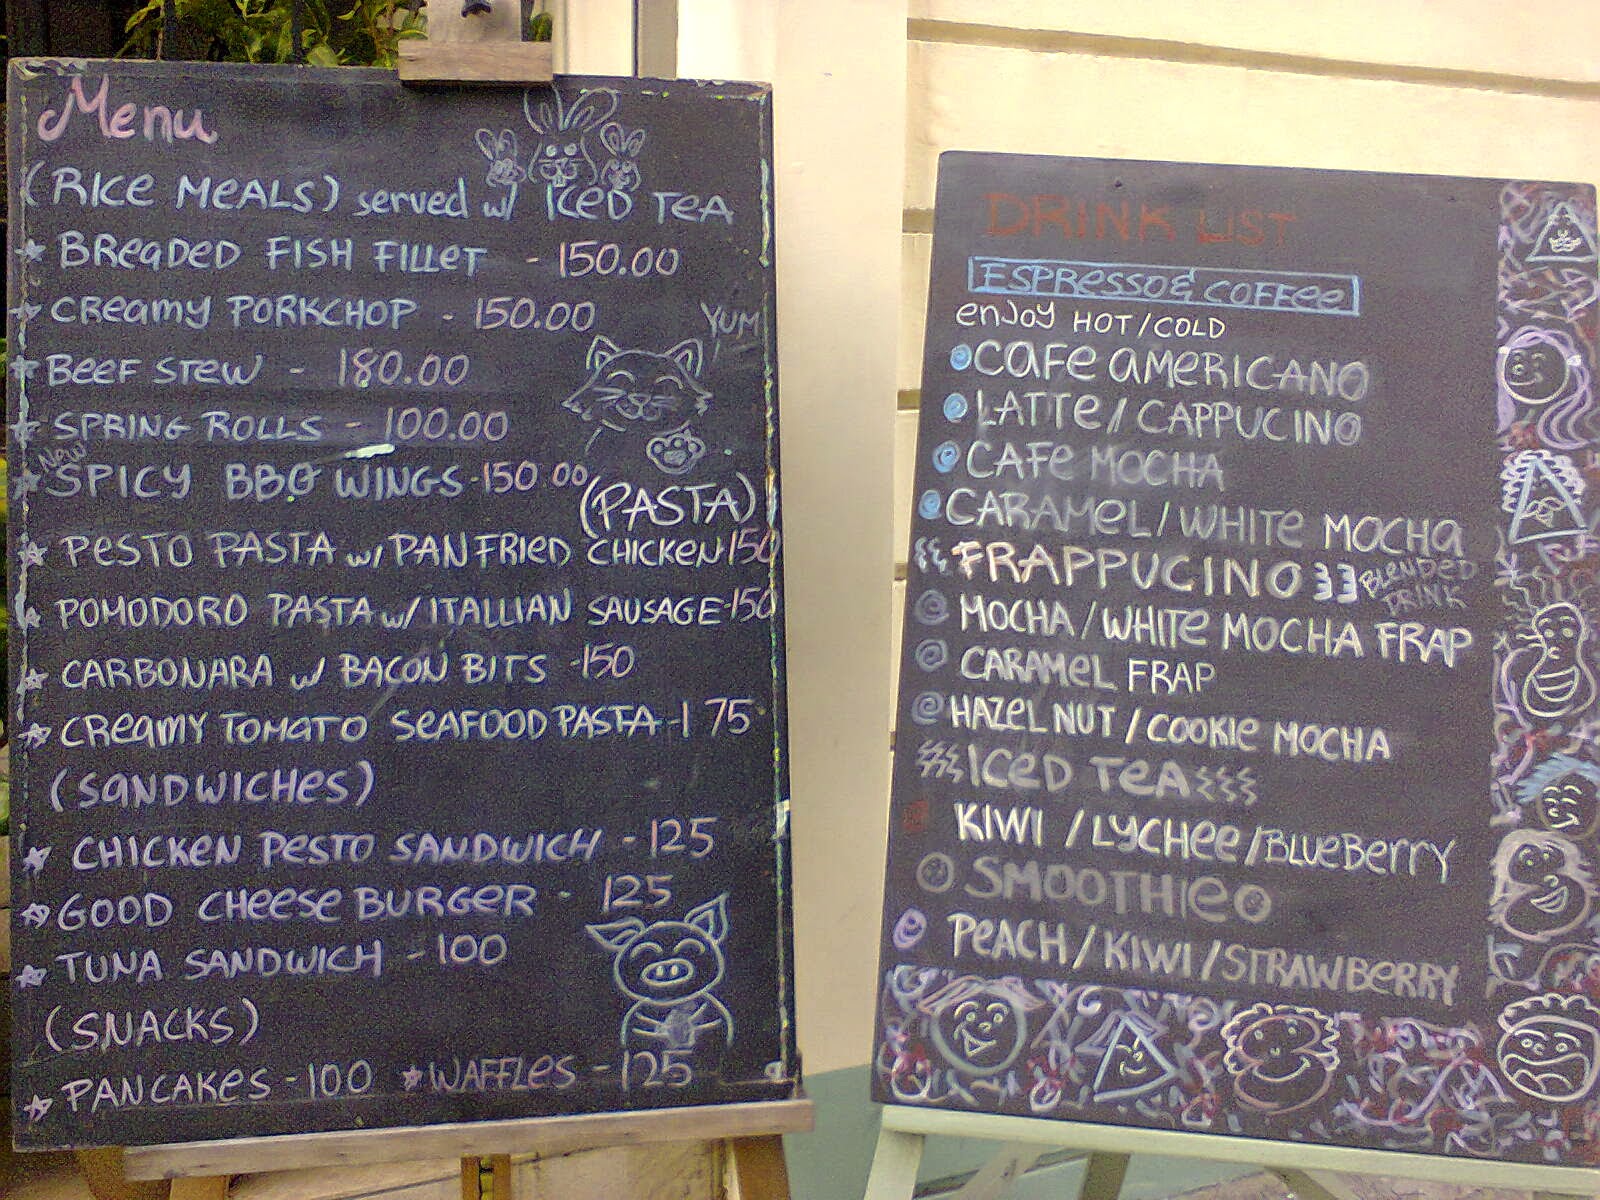 Menu
(RICE MEALS) served w/ ICED TEA
BREADED FISH FILLET - 150.00
CREAMY PORKCHOP - 150.00
YUM
BEEF STEW - 180.00
SPRING ROLLS - 100.00
NEW
SPICY BBQ WINGS - 150.00
(PASTA)
PESTO PASTA w/ PAN FRIED CHICKEN 150
POMODORO PASTA w/ ITALLIAN SAUSAGE - 150
CARBONARA w/ BACON BITS - 150
CREAMY TOMATO SEAFOOD PASTA - 175
(SANDWICHES)
CHICKEN PESTO SANDWICH - 125
GOOD CHEESE BURGER - 125
TUNA SANDWICH - 100
(SNACKS)
PANCAKES - 100 WAFFLES - 125
DRINK LIST
ESPRESSO & COFFEE
ENJOY HOT/COLD
CAFE AMERICANO
LATTE / CAPPUCINO
CAFE MOCHA
CARAMEL / WHITE MOCHA
FRAPPUCINO BLENDED DRINK
MOCHA / WHITE MOCHA FRAP
CARAMEL FRAP
HAZELNUT / COOKIE MOCHA
ICED TEA
KIWI / LYCHEE / BLUEBERRY
SMOOTHIE
PEACH / KIWI / STRAWBERRY